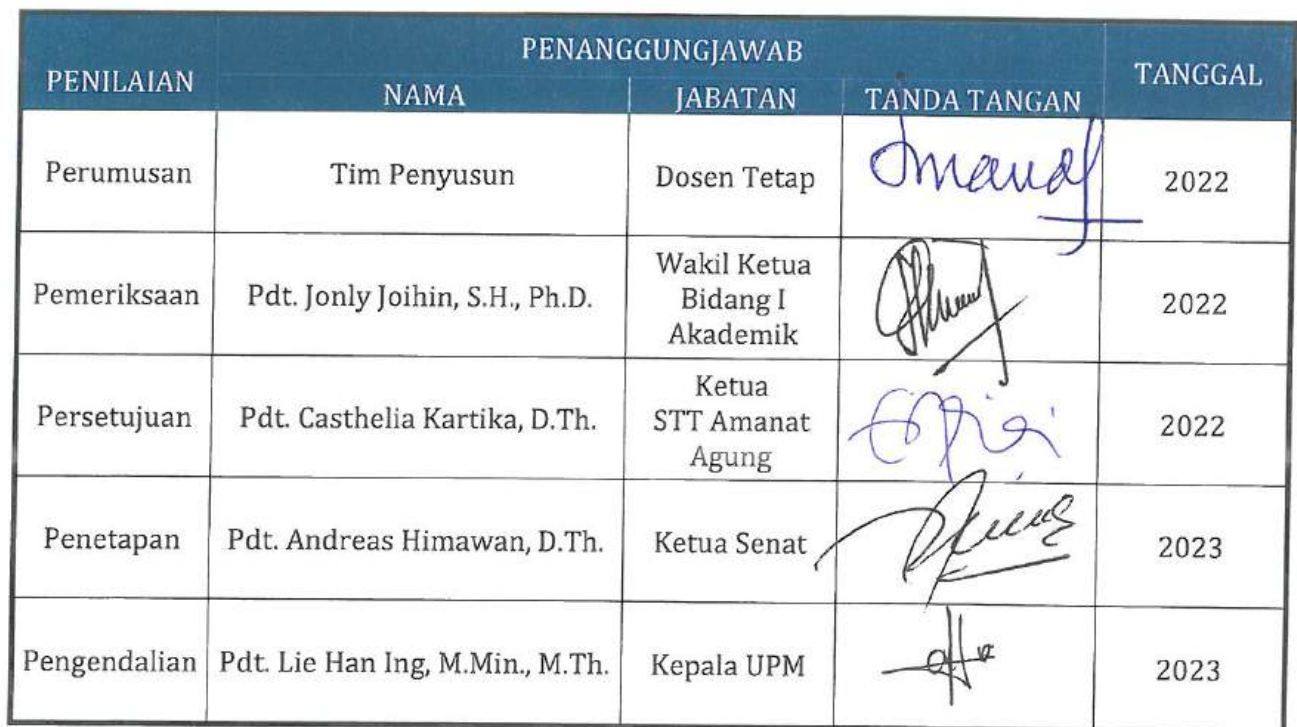 PENILAIAN
PENANGGUNGJAWAB
TANGGAL
NAMA
JABATAN
TANDA TANGAN
Perumusan
Tim Penyusun
Dosen Tetap
2022
Pemeriksaan
Pdt. Jonly Joihin, S.H., Ph.D.
Wakil Ketua
Bidang I
Akademik
2022
Persetujuan
Pdt. Casthelia Kartika, D.Th.
Ketua
STT Amanat
Agung
2022
Penetapan
Pdt. Andreas Himawan, D.Th.
Ketua Senat
2023
Pengendalian
Pdt. Lie Han Ing, M.Min., M.Th.
Kepala UPM
2023